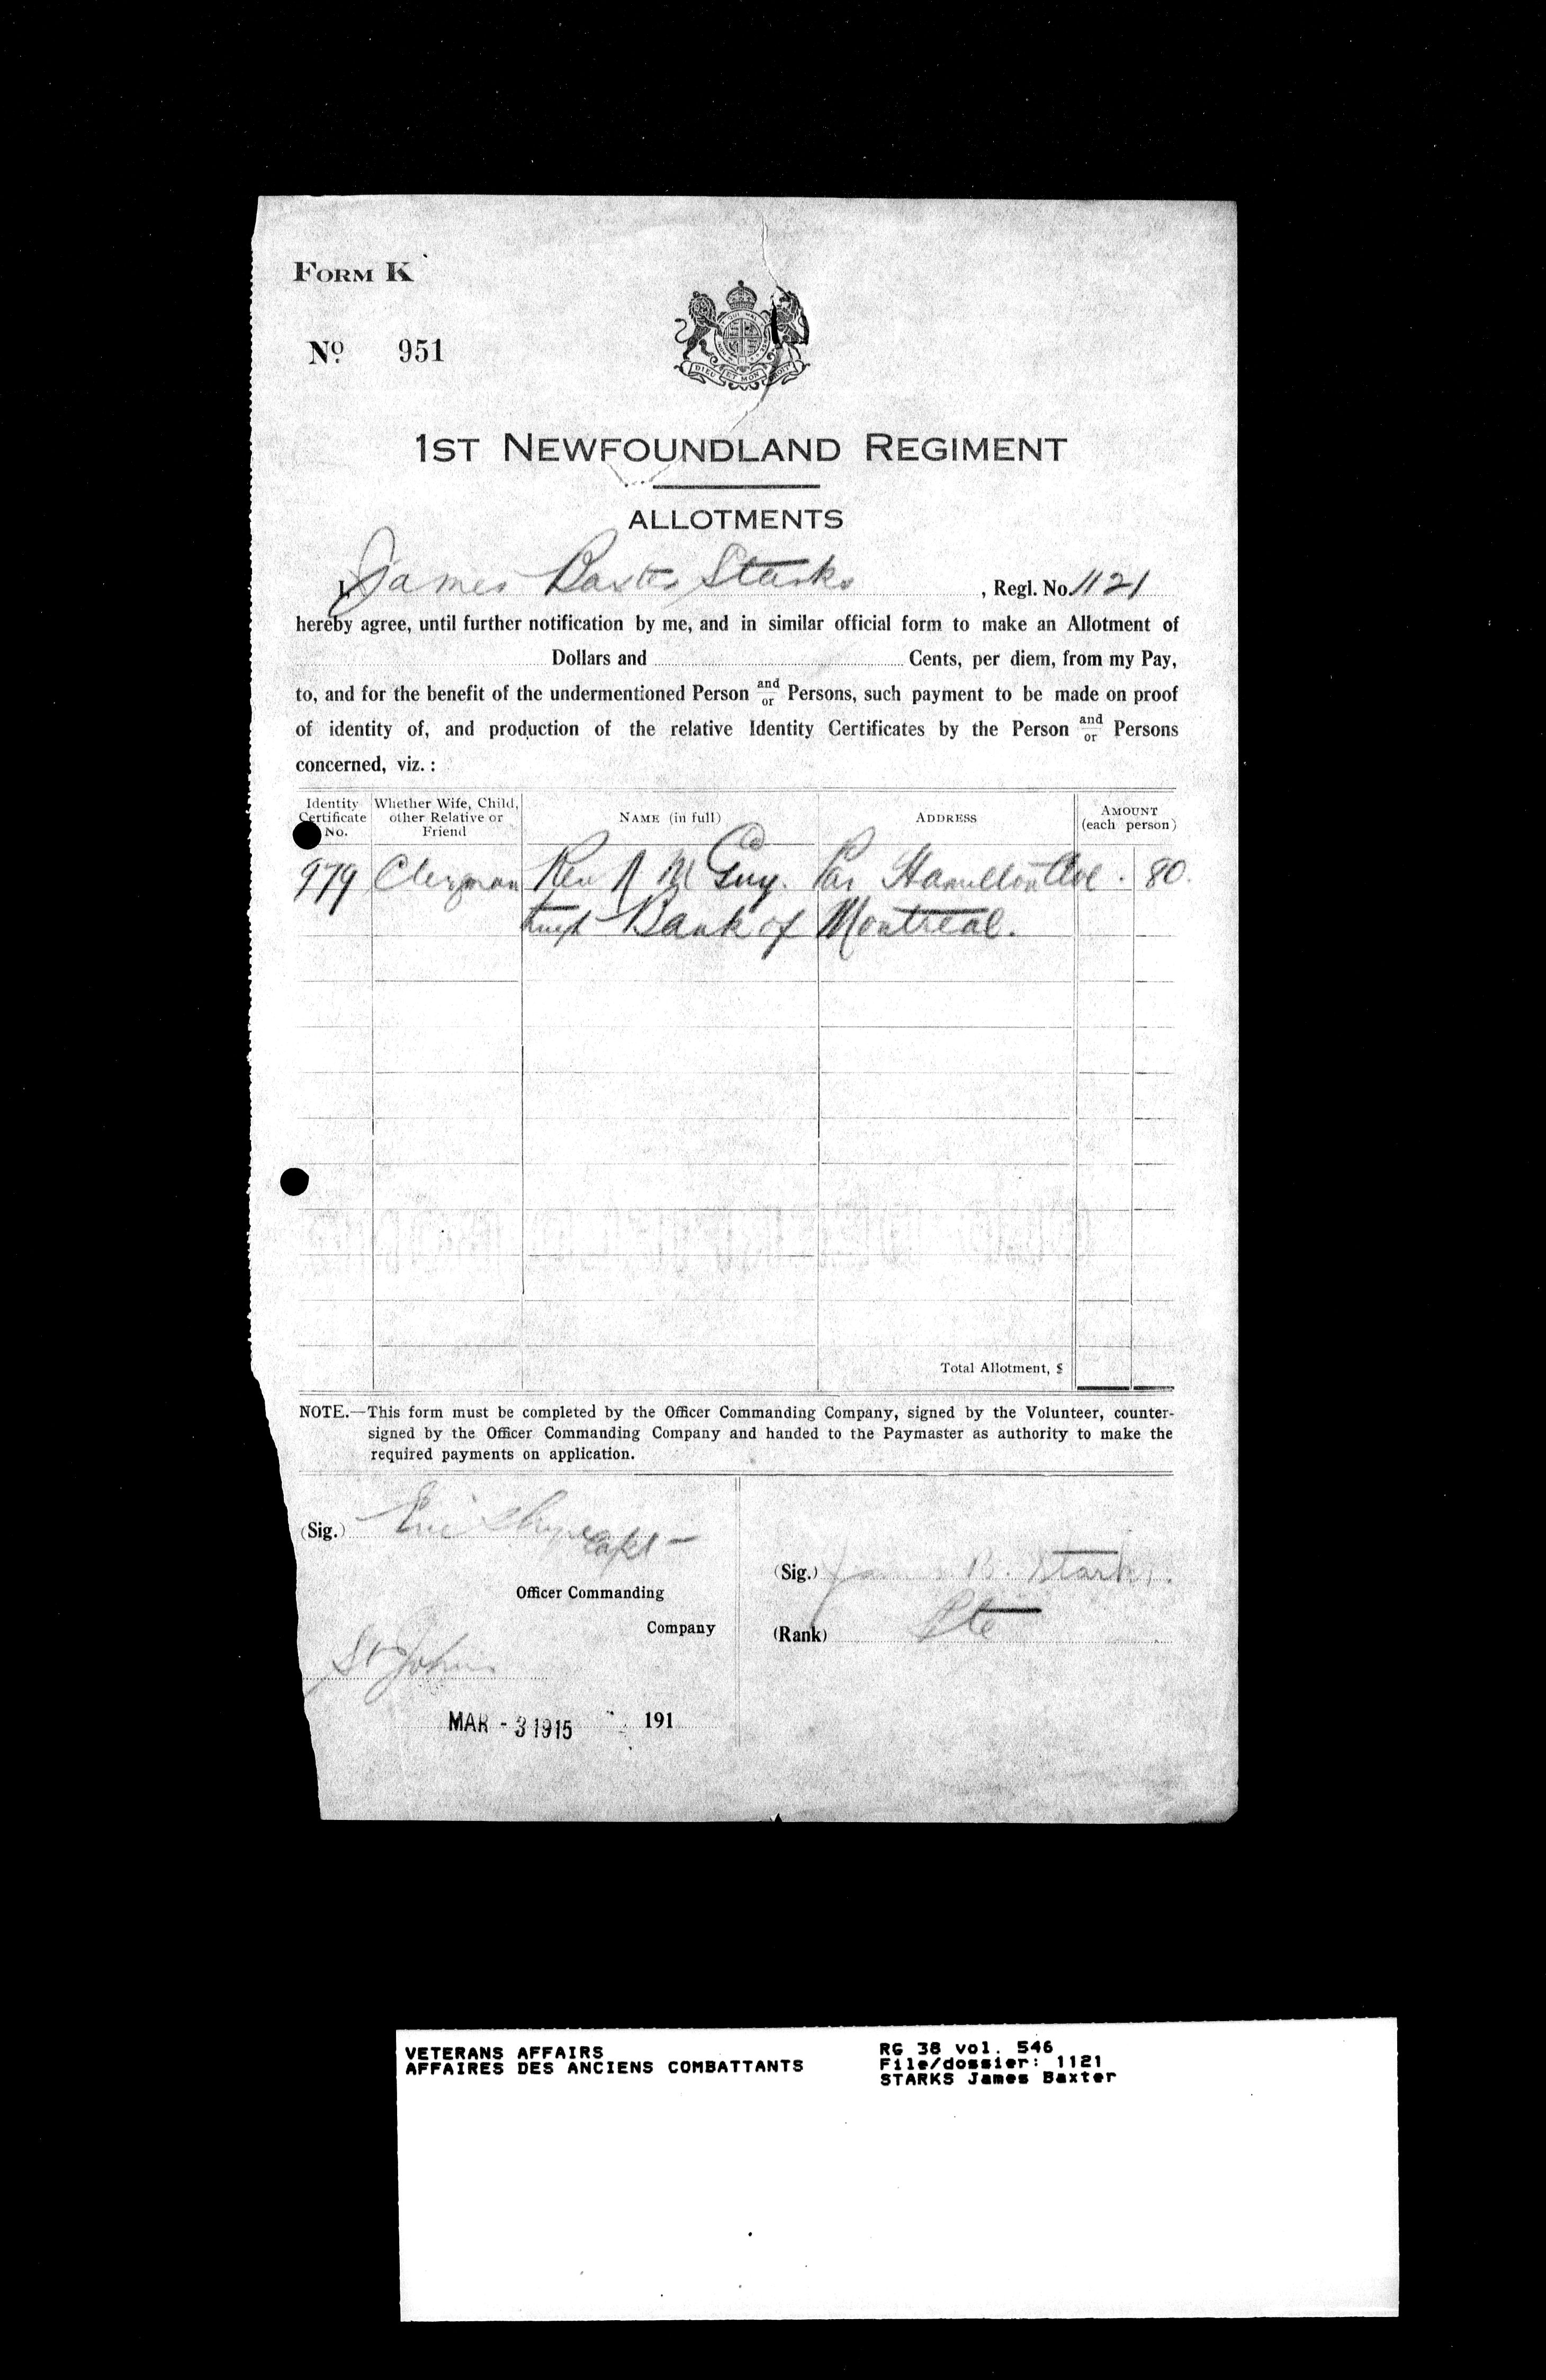 FORM K
Nº 951
DIEU ET MON DROIT
1ST NEWFOUNDLAND REGIMENT
ALLOTMENTS
I, James Baxter Starks, Regl. No. 1121
hereby agree, until further notification by me, and in similar official form to make an Allotment of
Dollars and Cents, per diem, from my Pay,
to, and for the benefit of the undermentioned Person and/or Persons, such payment to be made on proof
of identity of, and production of the relative Identity Certificates by the Person and/or Persons
concerned, viz. :
Identity Certificate No. Whether Wife, Child, other Relative or Friend NAME (in full) ADDRESS AMOUNT (each person)
979 Clergman Rev M Guy. Hamilton Ave. 80.
Bank of Montreal.
Total Allotment, $
NOTE.—This form must be completed by the Officer Commanding Company, signed by the Volunteer, counter-
signed by the Officer Commanding Company and handed to the Paymaster as authority to make the
required payments on application.
(Sig.) Capt
(Sig.) James B. Starks.
Officer Commanding
Company
(Rank) Pte
St Johns
MAR - 3 1915 191
VETERANS AFFAIRS
AFFAIRES DES ANCIENS COMBATTANTS
RG 38 vol. 546
File/dossier: 1121
STARKS James Baxter